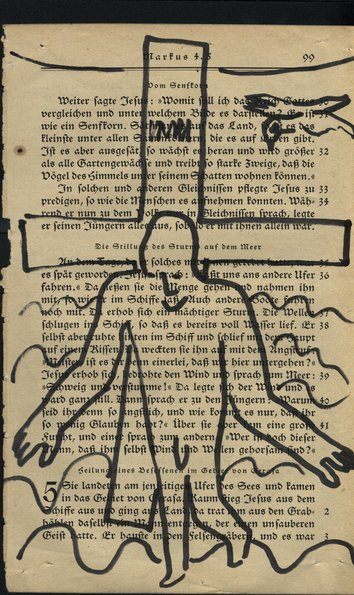 Markus 4.5 99
Vom Senfkorn
Weiter sagte Jesus: »Womit soll ich das Reich Gottes 30
vergleichen und unter welchem Bilde es darstellen? Es ist
wie ein Senfkorn. das Land, ist es das
kleinste unter allen die es auf gibt.
Ist es aber ausgesät, so wächst es heran und wird größer 32
als alle Gartengewächse und treibt so starke Zweige, daß die
Vögel des Himmels unter seinem Schatten wohnen können.«
In solchen und anderen Gleichnissen pflegte Jesus zu 33
predigen, so wie die Menschen es aufnehmen konnten. Wäh- 34
rend er nun zu dem Volk in Gleichnissen sprach, legte
er seinen Jüngern alles aus, sobald er mit ihnen allein war.
Die Stillung des Sturms auf dem Meer
An dem Tage, solches 35
es spät geworden, Jesus uns ans andere Ufer
fahren.« Da ließen sie die Menge gehen nahmen ihn 36
mit, im Schiffe Auch andere
noch mit. Da erhob sich ein mächtiger Sturm. Die Wellen 37
schlugen ins Schiff, so daß es bereits voll Wasser lief. Er 38
selbst aber ruhte im Schiff und schlief
auf einem Kissen. weckten sie ihn mit Angst
»Meister, ist es einerlei, daß wir hier untergehen?«
Jesus erhob sich, bedrohte den Wind und sprach zum Meer: 39
»Schweig und verstumme!« Da legte sich der Wind, und es
ward ganz still. Dann sprach er zu den Jüngern: »Warum 40
seid ihr denn so ängstlich, und wie kommt es nur, daß ihr
so wenig Glauben habt?« Über sie aber kam eine große 41
Furcht, und einer sprach zum andern: »Wer ist doch dieser
Mann, daß ihm selbst Wind und Wellen gehorsam sind?«
Heilung eines Besessenen im Gebiet von Gerasa
5 Sie landeten am jenseitigen Ufer des Sees und kamen
in das Gebiet von Gerasa. Kaum stieg Jesus aus dem 2
Schiffe aus und ging ans Land, da trat ihm aus den Grab-
höhlen daselbst ein Mann entgegen, der einen unsauberen
Geist hatte. Er hauste in den Felsengräbern, und es war 3